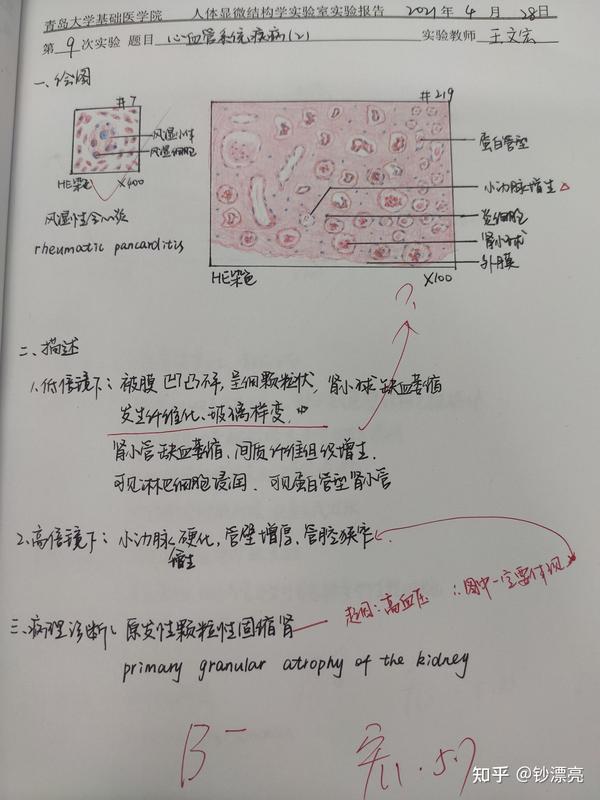 青岛大学基础医学院 人体显微结构学实验室实验报告 2021年 4 月 28日
第 9 次实验 题目 心血管系统疾病(2) 实验教师 王文宏
一、绘图
#7
#219
风湿小体
风湿细胞
蛋白管型
小动脉增生△
炎细胞
肾小球
外膜
HE染色 ×400
HE染色 ×100
风湿性全心炎
rheumatic pancarditis
?
二、描述
1.低倍镜下：被膜凹凸不平,呈细颗粒状,肾小球缺血萎缩
发生纤维化、玻璃样变。
肾小管缺血萎缩、间质纤维组织增生.
可见淋巴细胞浸润、可见蛋白管型肾小管
2.高倍镜下：小动脉硬化,管壁增厚、管腔狭窄.
增生
起因：高血压 ∴图中一定要体现
三、病理诊断、原发性颗粒性固缩肾
primary granular atrophy of the kidney
B-
5.7
知乎 @钞漂亮